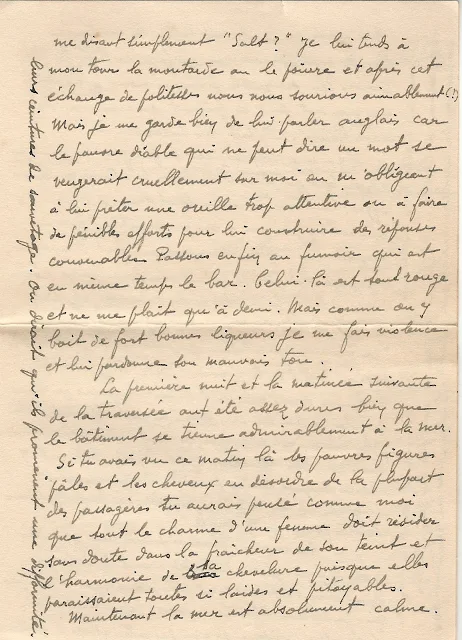 me disant simplement "Salt?" je lui tends à
mon tour la moutarde ou le poivre et après cet
échange de politesses nous nous sourions aimablement (!)
Mais je me garde bien de lui parler anglais car
le pauvre diable qui ne peut dire un mot se
vengerait cruellement sur moi en m'obligeant
à lui prêter une oreille trop attentive ou à faire
de pénibles efforts pour lui construire des réponses
convenables. Passons enfin au fumoir qui est
en même temps le bar. Celui-là est tout rouge
et ne me plaît qu'à demi. Mais comme on y
boit de fort bonnes liqueurs je me fais violence
et lui pardonne son mauvais ton.
La première nuit et la matinée suivante
de la traversée ont été assez dures bien que
le bâtiment se tienne admirablement à la mer.
Si tu avais vu ce matin là les pauvres figures
pâles et les cheveux en désordre de la plupart
des passagères tu aurais pensé comme moi
que tout le charme d'une femme doit résider
sans doute dans la fraîcheur de son teint et
l'harmonie de sa chevelure puisque elles
paraissaient toutes si laides et pitoyables.
Maintenant la mer est absolument calme.
leurs ceintures de sauvetage. On dirait qu'ils promènent une difformité.